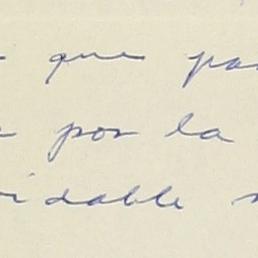 que pa
por la
idable